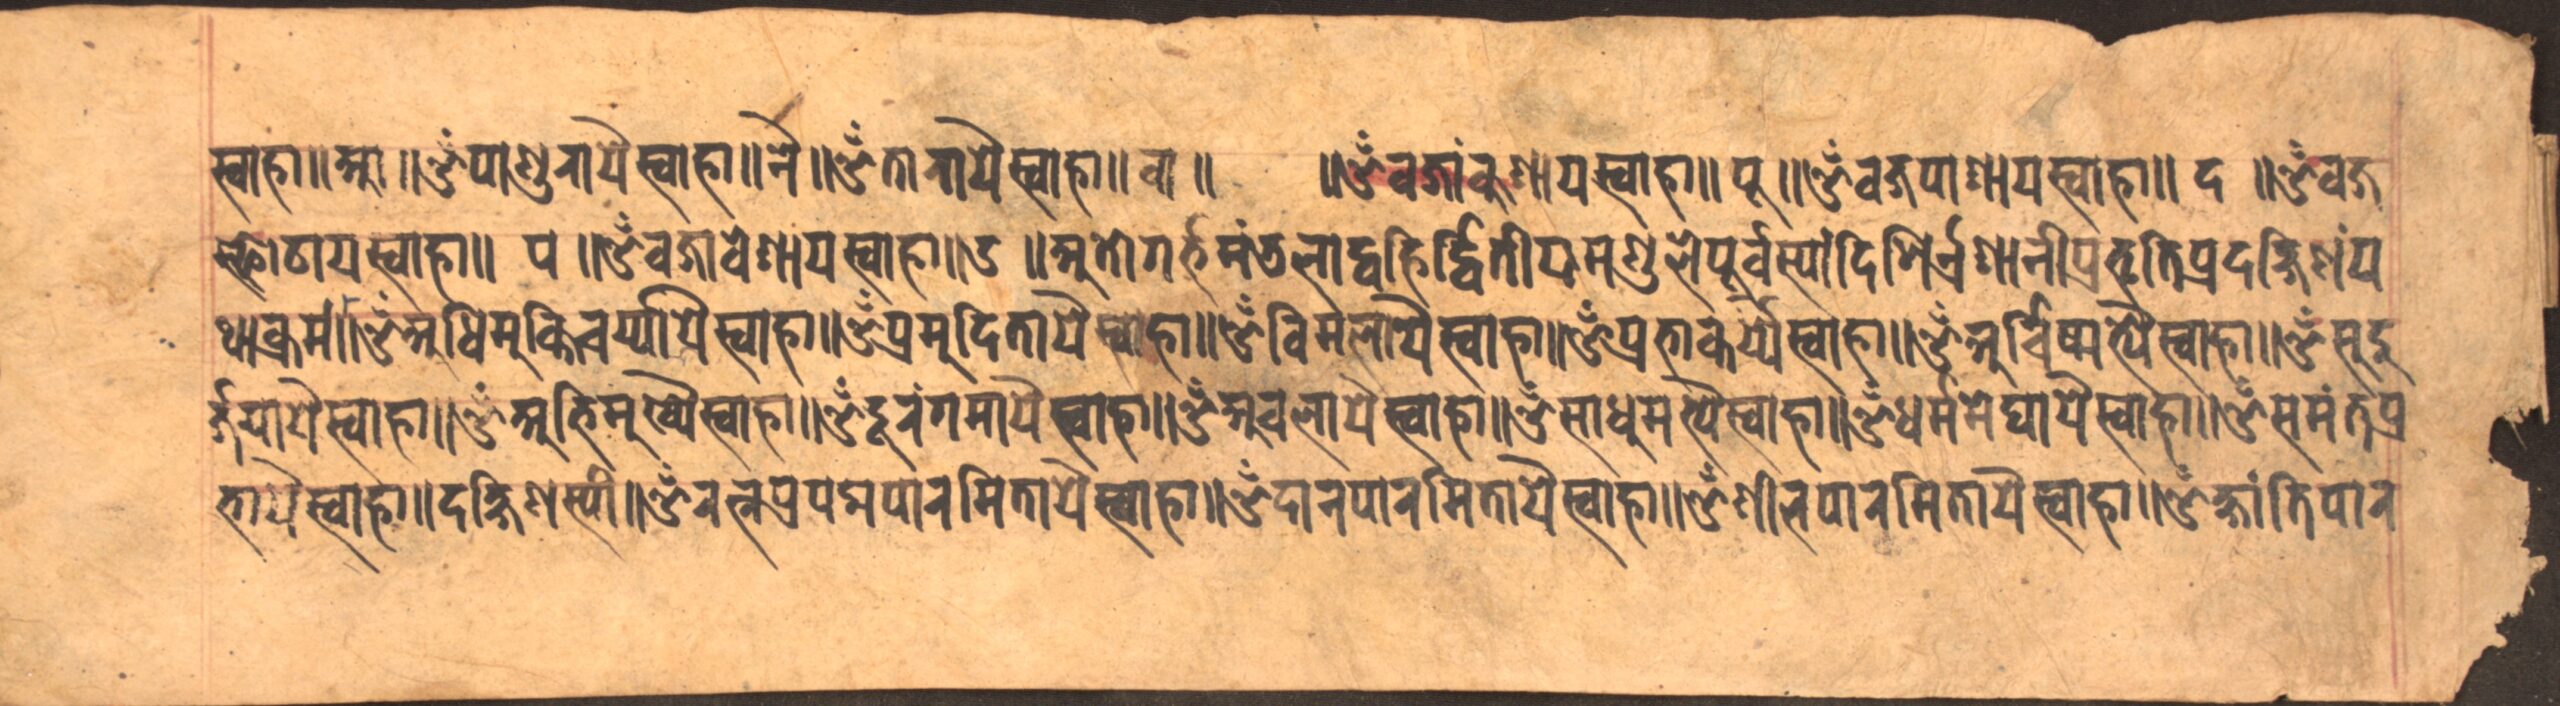 स्वाहा॥ आ ॥ॐ पाण्डुरायै स्वाहा॥ नै ॥ॐ तारायै स्वाहा॥ वा ॥ ॥ॐ वज्रांकुशाय स्वाहा॥ पू ॥ॐ वज्रपाशाय स्वाहा॥ द ॥ॐ वज्र
स्फोटाय स्वाहा॥ प ॥ॐ वज्रावेशाय स्वाहा॥ उ ॥ अतो गर्भमंडलाद्वहिर्द्वितीयमण्डले पूर्वस्यां दिशि ईशानीप्रभृति प्रदक्षिणं य
थाक्रमं॥ॐ अधिमुक्तिचर्य्यायै स्वाहा॥ॐ प्रमुदितायै स्वाहा॥ॐ विमलायै स्वाहा॥ॐ प्रभाकर्य्यै स्वाहा॥ॐ अर्चिष्मत्यै स्वाहा॥ॐ सुदु
र्ज्जयायै स्वाहा॥ॐ अभिमुख्यै स्वाहा॥ॐ दूरंगमायै स्वाहा॥ॐ अचलायै स्वाहा॥ॐ साधुमत्यै स्वाहा॥ॐ धर्ममेघायै स्वाहा॥ॐ समंतप्र
भायै स्वाहा॥ दक्षिणस्यां॥ॐ रत्नप्रपद्मपारमितायै स्वाहा॥ॐ दानपारमितायै स्वाहा॥ॐ शीलपारमितायै स्वाहा॥ॐ क्षांतिपार